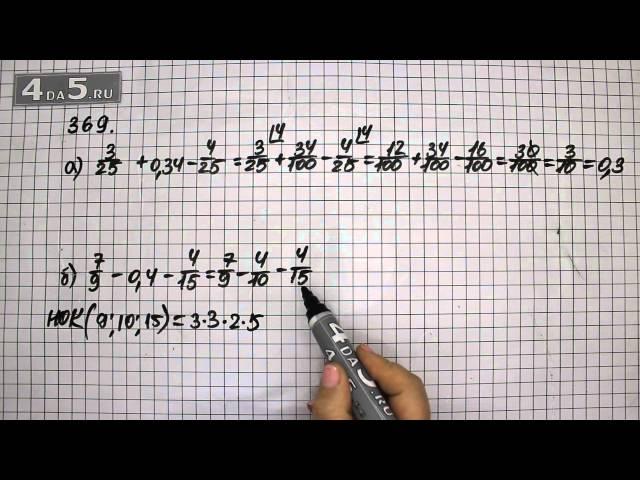 4DA5.RU
369.
а) 3/25 + 0,34 - 4/25 = 3/25 |4 + 34/100 - 4/25 |4 = 12/100 + 34/100 - 16/100 = 30/100 = 3/10 = 0,3
б) 7/9 - 0,4 - 4/15 = 7/9 - 4/10 - 4/15
НОК(9;10;15) = 3·3·2·5
4DA5.RU